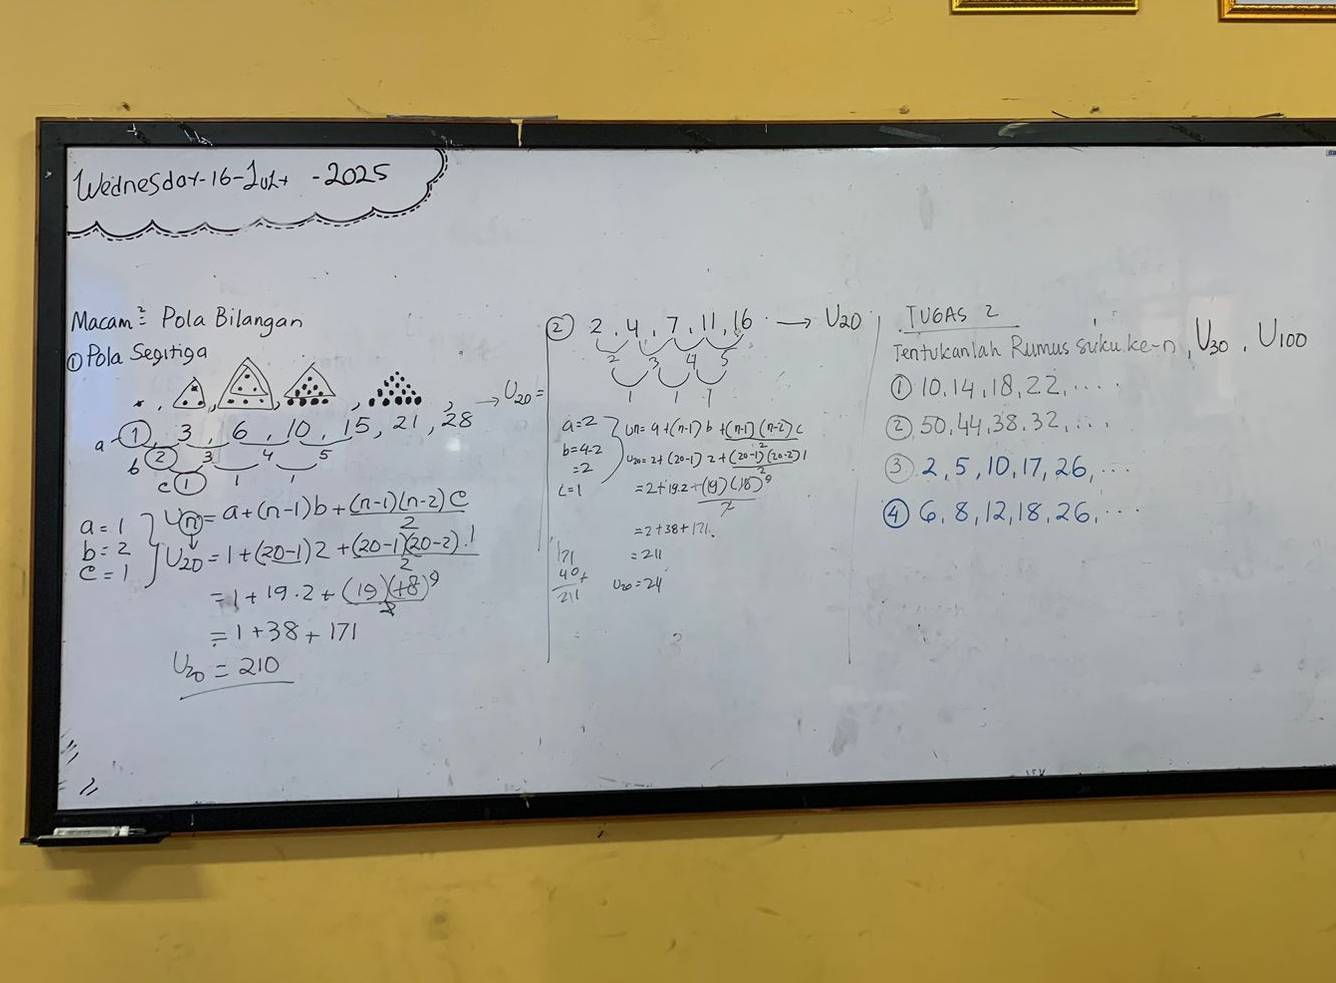 Wednesday-16-July-2025
Macam²: Pola Bilangan
① Pola Segitiga
→ U20 =
1, 3, 6, 10, 15, 21, 28
a
b 2 3 4 5
c 1 1 1
a = 1
b = 2
c = 1
Un = a+(n-1)b+(n-1)(n-2)c/2
U20 = 1+(20-1)2+(20-1)(20-2).1/2
= 1+19.2+(19)(18)9/2
= 1+38+171
U20 = 210
② 2, 4, 7, 11, 16 → U20
2 3 4 5
1 1 1
a=2
b=4-2
=2
c=1
Un= a+(n-1)b+(n-1)(n-2)c/2
U20= 2+(20-1)2+(20-1)(20-2)1/2
= 2+19.2+(19)(18)9/2
=2+38+171
= 211
U20=24
171
40+
211
TUGAS 2
Tentukanlah Rumus suku ke-n, U30, U100
① 10, 14, 18, 22, ....
② 50, 44, 38, 32, ...
③ 2, 5, 10, 17, 26, ...
④ 6, 8, 12, 18, 26, ...